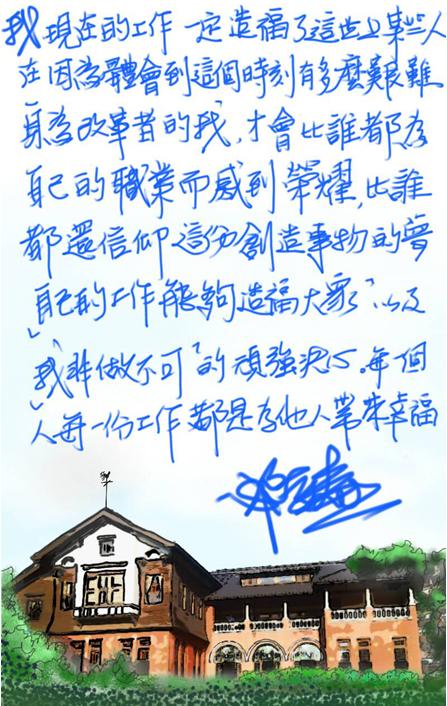 我現在的工作一定造福了這世上某些人
在因為體會到這個時刻有多麼艱難
身為改革者的我，才會比誰都為
自己的職業而感到榮耀，比誰
都還信仰這份創造事物的夢
自己的工作能夠造福大眾"以及
"我非做不可"的頑強決心。每個
人每一份工作都是為他人帶來幸福